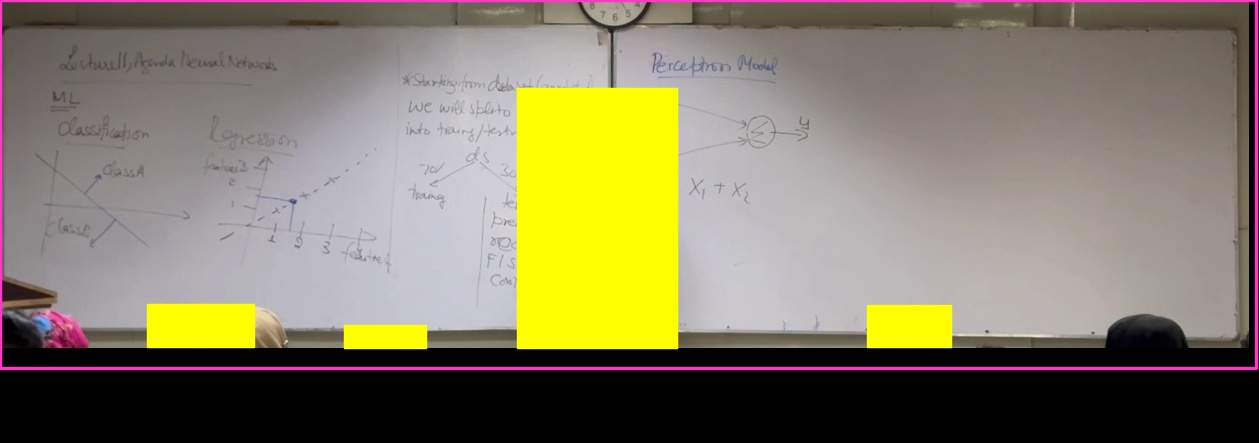 Lecture11, Agenda Neural Networks
ML
Classification
class A
class
Regression
2
1
1 2 3 4
*Starting from
we will split
into traing/test
ds
70% 30
traing
te
pre
rec
F1 S
Con
Perceptron Model
Σ y
X1 + X2
8 7 6 5 4